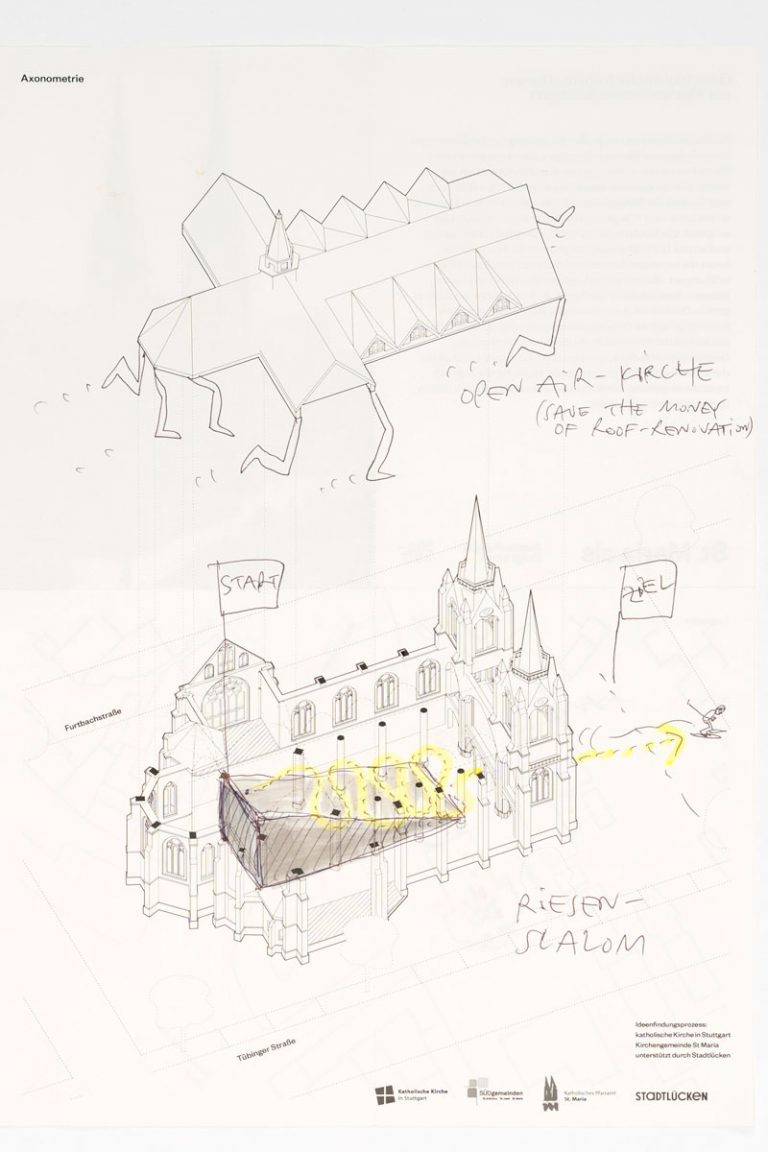 Axonometrie
OPEN AIR-KIRCHE
(SAVE THE MONEY
OF ROOF-RENOVATION)
START
ZIEL
Furtbachstraße
RIESEN-
SLALOM
Tübinger Straße
Ideenfindungsprozess:
katholische Kirche in Stuttgart
Kirchengemeinde St Maria
unterstützt durch Stadtlücken
Katholische Kirche
in Stuttgart
SÜDgemeinden
Katholisches Pfarramt
St. Maria
STADTLÜCKEN